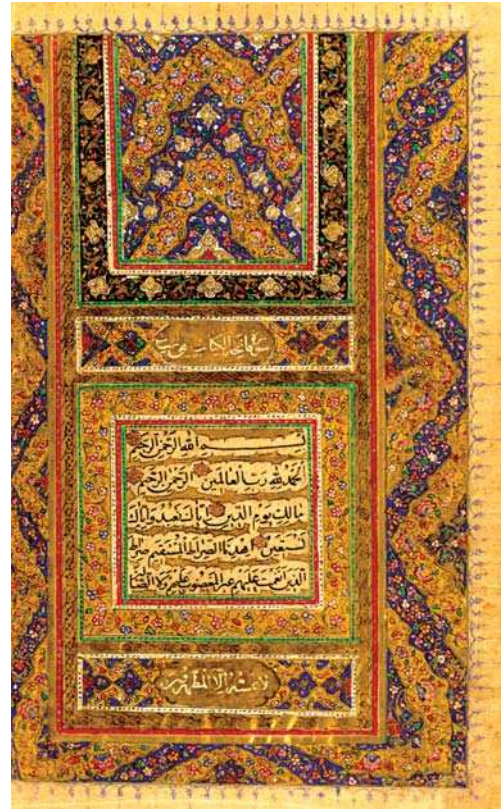 سورة فاتحة الكتاب هي سبع
بسم الله الرحمن الرحيم
الحمد لله رب العالمين الرحمن الرحيم
مالك يوم الدين اياك نعبد واياك
نستعين اهدنا الصراط المستقيم صراط
الذين انعمت عليهم غير المغضوب عليهم ولا الضالين
لا يمسه الا المطهرون